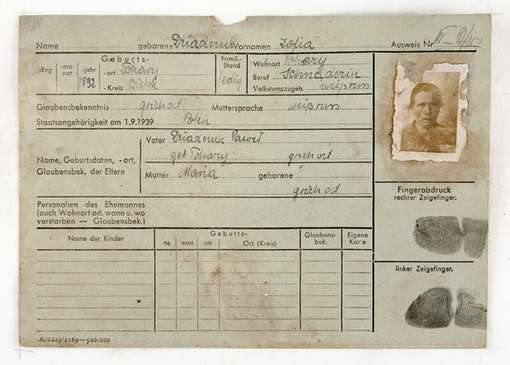 Name geborene Driadernik Vornamen Zofia Ausweis Nr.
Geburts- Famil.- Wohnort
-tag -mo-nat -jahr -ort Stand Beruf Schneiderin
1892 -Kreis Bielsk ledig Volkstumszugeh. weißrus
Glaubensbekenntnis griech ort Muttersprache weißrus
Staatsangehörigkeit am 1.9.1939 Polen
Vater
geb. griech ort
Name, Geburtsdaten, -ort,
Glaubensbek. der Eltern
Mutter Maria geborene
griech ort
Personalien des Ehemannes
(auch Wohnort od. wann u. wo
verstorben — Glaubensbek.)
Name der Kinder Geburts- Glaubens-bek. Eigene Karte
-tag -monat -jahr Ort (Kreis)
Fingerabdruck
rechter Zeigefinger.
linker Zeigefinger.